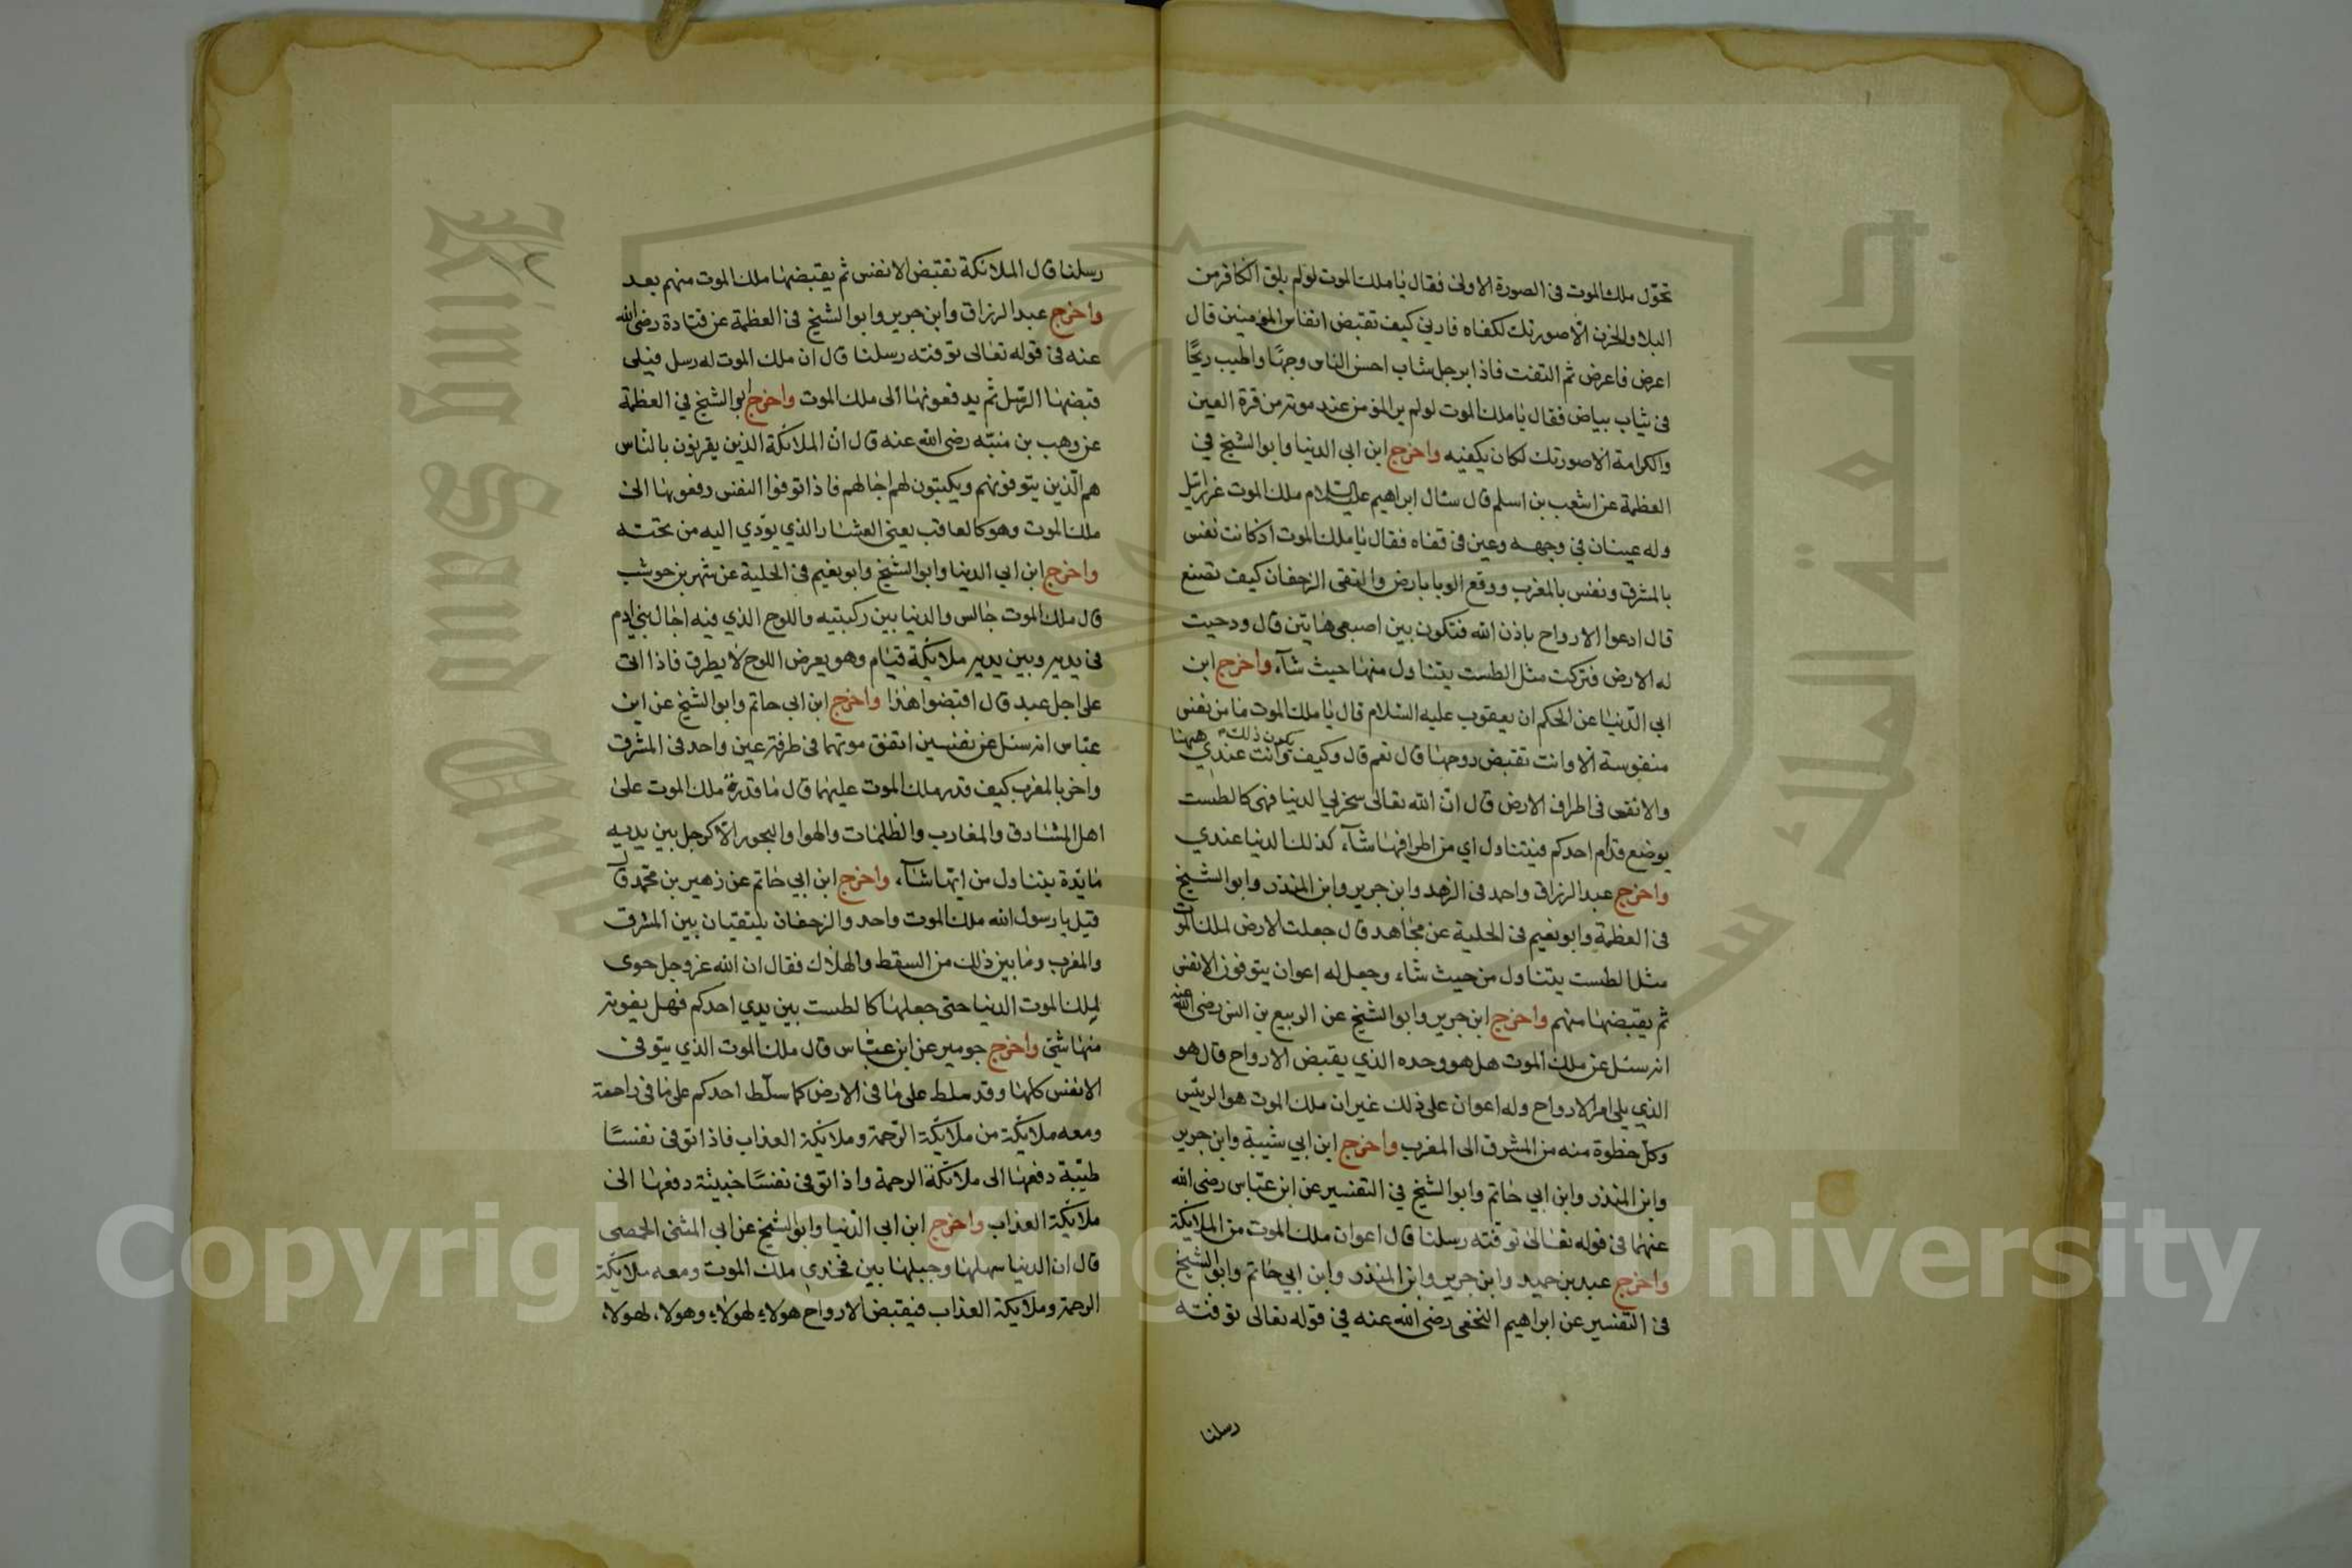 تحوّل ملك الموت فى الصورة الاولى فقال يا ملك الموت لو لم يلق الكافر من
البلا والحزن الّا صورتك لكفاه فارنى كيف تقبض انفاس المؤمنين قال
اعرض فاعرض ثم التفت فاذا برجل شاب احسن الناس وجهًا واطيب ريحًا
فى ثياب بياض فقال يا ملك الموت لو لم ير المؤمن عند موته من قرة العين
والكرامة الا صورتك لكان يكفيه واخرج ابن ابى الدنيا وابو الشيخ في
العظمة عن اشعب بن اسلم قال سئال ابراهيم عليه السّلام ملك الموت عزرائيل
وله عينان في وجهه وعين فى قفاه فقال يا ملك الموت اذ كانت نفس
بالمشرق ونفس بالمغرب ووقع الوبا بارض والتقى الزحفان كيف تصنع
قال ادعوا الارواح باذن الله فتكون بين اصبعى هاتين قال ودحيت
له الارض فتركت مثل الطست يتناول منها حيث شآء واخرج ابن
ابي الدّنيا عن الحكم ان يعقوب عليه السّلام قال يا ملك الموت ما من نفس
منفوسة الّا وانت تقبض روحها قال نعم قال وكيف يكون ذلك وانت عندي ههنا
والانفس فى اطراف الارض قال انّ الله تعالى سخر لي الدنيا فهى كالطست
يوضع قدام احدكم فيتناول اي من اطرافها شآء كذلك الدنيا عندي
واخرج عبد الرزاق واحمد فى الزهد وابن جرير وابن المنذر وابو الشيخ
فى العظمة وابو نعيم فى الحلية عن مجاهد قال جعلت الارض لملك الموت
مثل الطست يتناول من حيث شاء وجعل له اعوان يتوفون الانفس
ثم يقبضها منهم واخرج ابن جرير وابو الشيخ عن الربيع بن انس رضى الله عنه
انه سئل عن ملك الموت هل هو وحده الذي يقبض الارواح قال هو
الذي يلى امر الارواح وله اعوان على ذلك غير ان ملك الموت هو الرئيس
وكلّ خطوة منه من المشرق الى المغرب واخرج ابن ابي شيبة وابن جرير
وابن المنذر وابن ابي حاتم وابو الشيخ في التفسير عن ابن عبّاس رضى الله
عنهما فى قوله تعالى توفته رسلنا قال اعوان ملك الموت من الملايكة
واخرج عبد بن حميد وابن جرير وابن المنذر وابن ابي حاتم وابو الشيخ
فى التفسير عن ابراهيم النخعى رضى الله عنه في قوله تعالى توفته
رسلنا
رسلنا قال الملائكة تقبض الانفس ثم يقبضها ملك الموت منهم بعد
واخرج عبد الرزاق وابن جرير وابو الشيخ فى العظمة عن قتادة رضى الله
عنه فى قوله تعالى توفته رسلنا قال ان ملك الموت له رسل فيلى
قبضها الرّسل ثم يدفعونها الى ملك الموت واخرج ابو الشيخ في العظمة
عن وهب بن منبّه رضى الله عنه قال انّ الملائكة الذين يقرنون بالنّاس
هم الّذين يتوفونهم ويكتبون لهم اجالهم فاذا توفوا النفس دفعوها الى
ملك الموت وهو كالعاقب يعنى العشار الذي يؤدي اليه من تحته
واخرج ابن ابي الدنيا وابو الشيخ وابو نعيم فى الحلية عن شهر بن حوشب
قال ملك الموت جالس والدنيا بين ركبتيه واللوح الذي فيه اجال بني ادم
فى يديه وبين يديه ملايكة قيام وهو يعرض اللوح لا يطرف فاذا اتى
على اجل عبد قال اقبضوا هذا واخرج ابن ابى حاتم وابو الشيخ عن ابن
عبّاس انه سئل عن نفسين اتفق موتهما فى طرفة عين واحد فى المشرق
واخر بالمغرب كيف قدر ملك الموت عليهما قال ما قدرة ملك الموت على
اهل المشارق والمغارب والظلمات والهوا والبحور الّا كرجل بين يديه
مايدة يتناول من ايّها شآء واخرج ابن ابي حاتم عن زهير بن محمّد قال
قيل يا رسول الله ملك الموت واحد والزحفان يلتقيان بين المشرق
والمغرب وما بين ذلك من السقط والهلاك فقال ان الله عز وجل حوى
لملك الموت الدنيا حتى جعلها كالطست بين يدي احدكم فهل يفوته
منها شئ واخرج جويبر عن ابن عبّاس قال ملك الموت الذي يتوفى
الانفس كلها وقد سلط على ما فى الارض كما سلّط احدكم على ما فى راحته
ومعه ملايكة من ملايكة الرّحمة وملايكة العذاب فاذا توفى نفسًا
طيّبة دفعها الى ملائكة الرحمة واذا توفى نفسًا خبيثة دفعها الى
ملايكة العذاب واخرج ابن ابى الدّنيا وابو الشيخ عن ابى المثنى الحمصى
قال ان الدنيا سهلها وجبلها بين فخذي ملك الموت ومعه ملايكة
الرحمة وملايكة العذاب فيقبض الارواح هولاء لهولاء وهولاء لهولاء
جامعة الملك سعود
King Saud University
Copyright © King Saud University